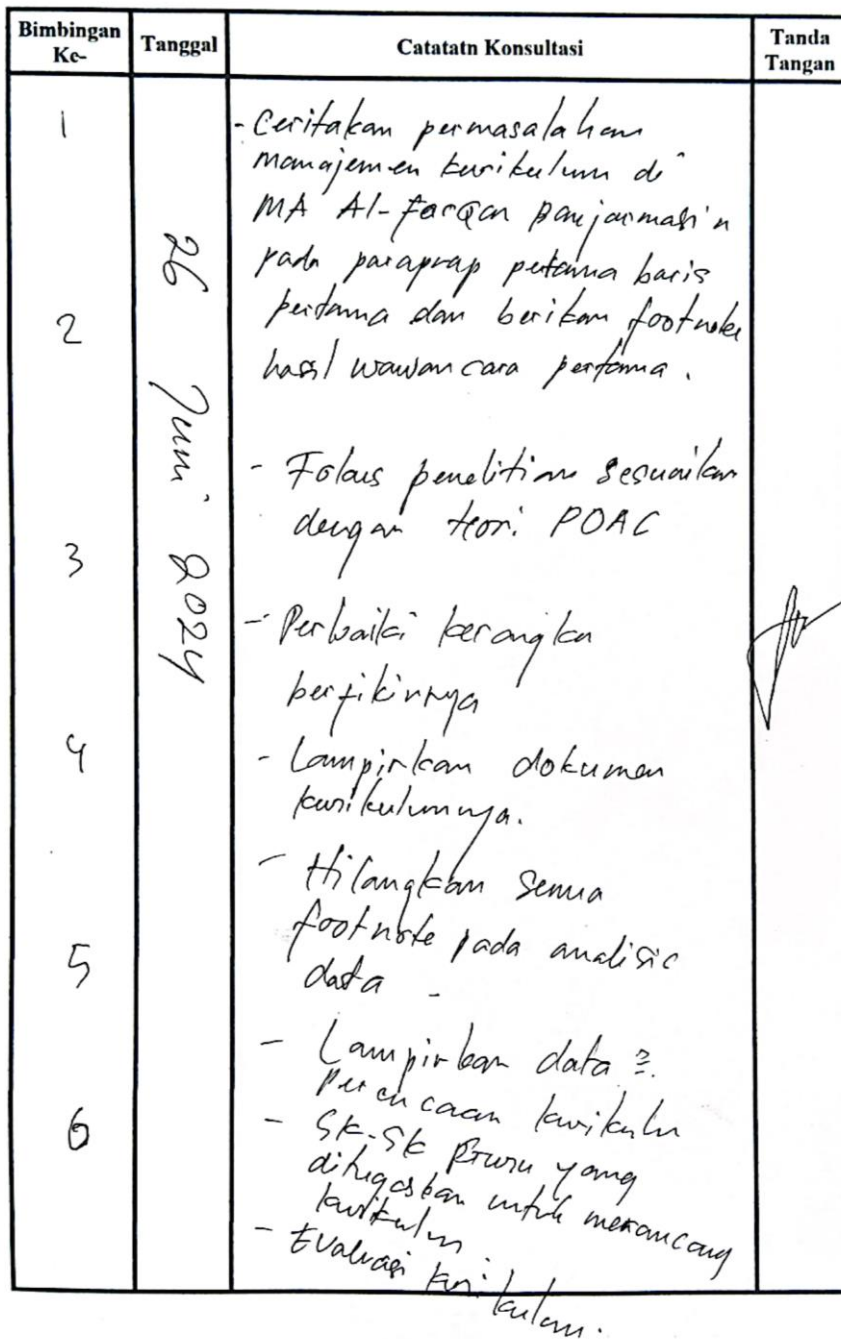 Bimbingan Ke-
Tanggal
Catatatn Konsultasi
Tanda Tangan
1
2
3
4
5
6
26 Juni 2024
- Ceritakan permasalahan
manajemen kurikulum di
MA Al-Furqan Banjarmasin
pada paraprap pertama baris
pertama dan berikan footnote
hasil wawancara pertama.
- Fokus penelitian sesuaikan
dengan teori POAC
- Perbaiki kerangka
berfikirnya
- Lampirkan dokumen
kurikulumnya.
- Hilangkan semua
footnote pada analisis
data -
- Lampirkan data 2.
perencanaan kurikulu
- SK-SK guru yang
ditugaskan untuk merancang
kurikulum.
- Evaluasi kurikulum.